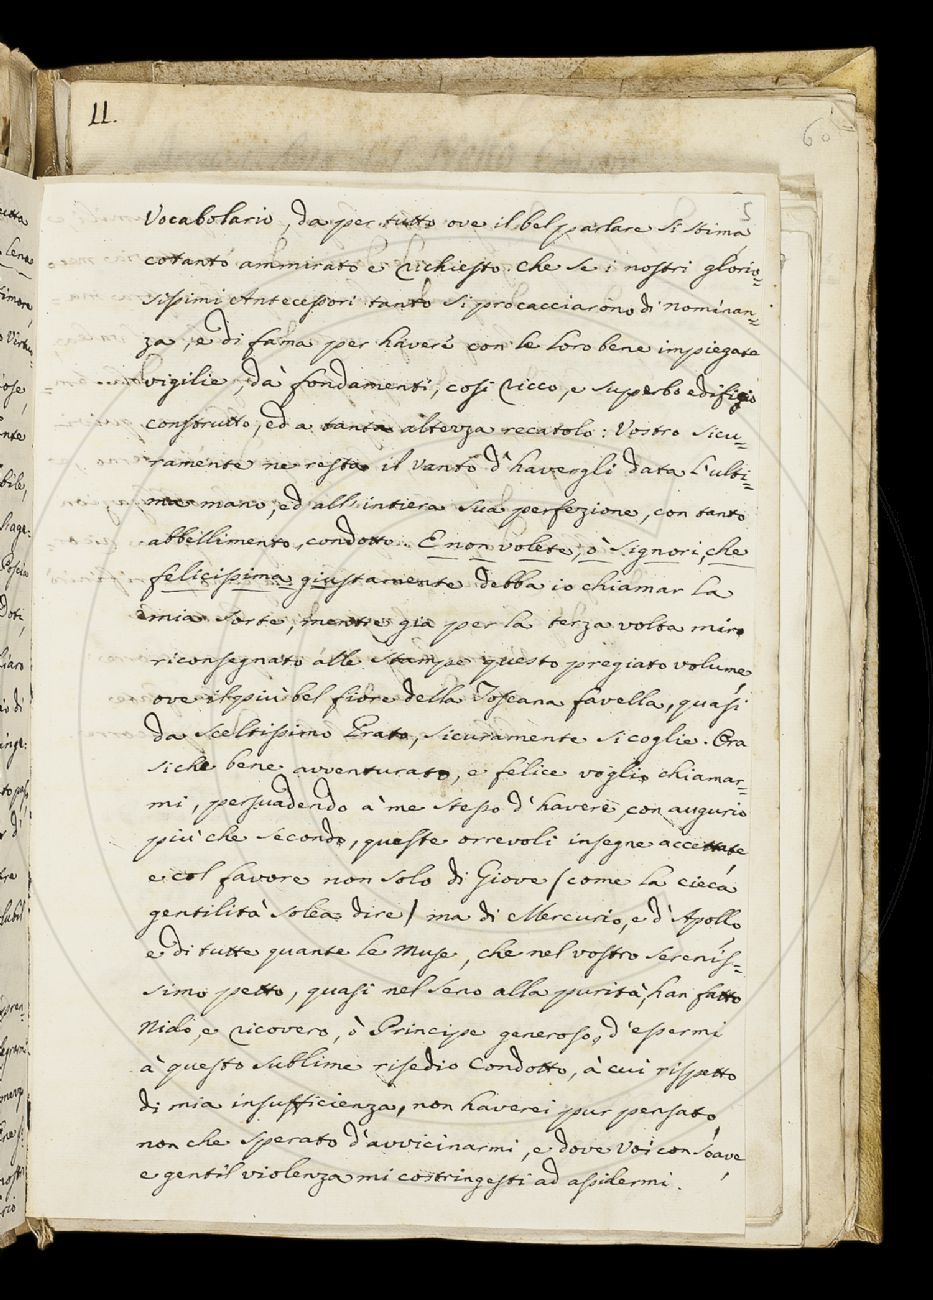 11.
60
5
Vocabolario, da per tutto ove il bel parlare si stima
cotanto ammirato e richiesto. che se i nostri glorio=
sissimi Antecessori tanto si procacciarono di nominan=
za, e di fama per haveri con le loro bene impiegate
vigilie, da' fondamenti, così ricco, e superbo edifizio
construtto, ed a tanta altezza recatolo: Vostro sicu=
ramente ne resta il vanto d'havergli data l'ulti=
ma mano, ed all'intiera sua perfezione, con tanto
abbellimento, condotto. E non volete, ò Signori, che
felicissima giustamente debba io chiamar la
mia sorte, mentre già per la terza volta miro
riconsegnato alle stampe questo pregiato volume
ove il più bel fiore della Toscana favella, quasi
da sceltissimo Prato, sicuramente si coglie. Ora
sì che bene avventurato, e felice voglio chiamar=
mi, persuadendo à me stesso d'havere con augurio
più che secondo, queste orrevoli insegne accettate
e col favore non solo di Giove (come la cieca
gentilità solea dire) ma di Mercurio, e d'Apollo
e di tutte quante le Muse, che nel vostro serenis=
simo petto, quasi nel seno alla purità, han fatto
Nido, e ricovero, ò Principe generoso, d'essermi
à questo sublime risedio Condotto, à cui rispetto
di mia insufficienza, non haverei pur pensato,
non che sperato d'avvicinarmi, e dove voi con soave
e gentil violenza mi costringesti ad assidermi.